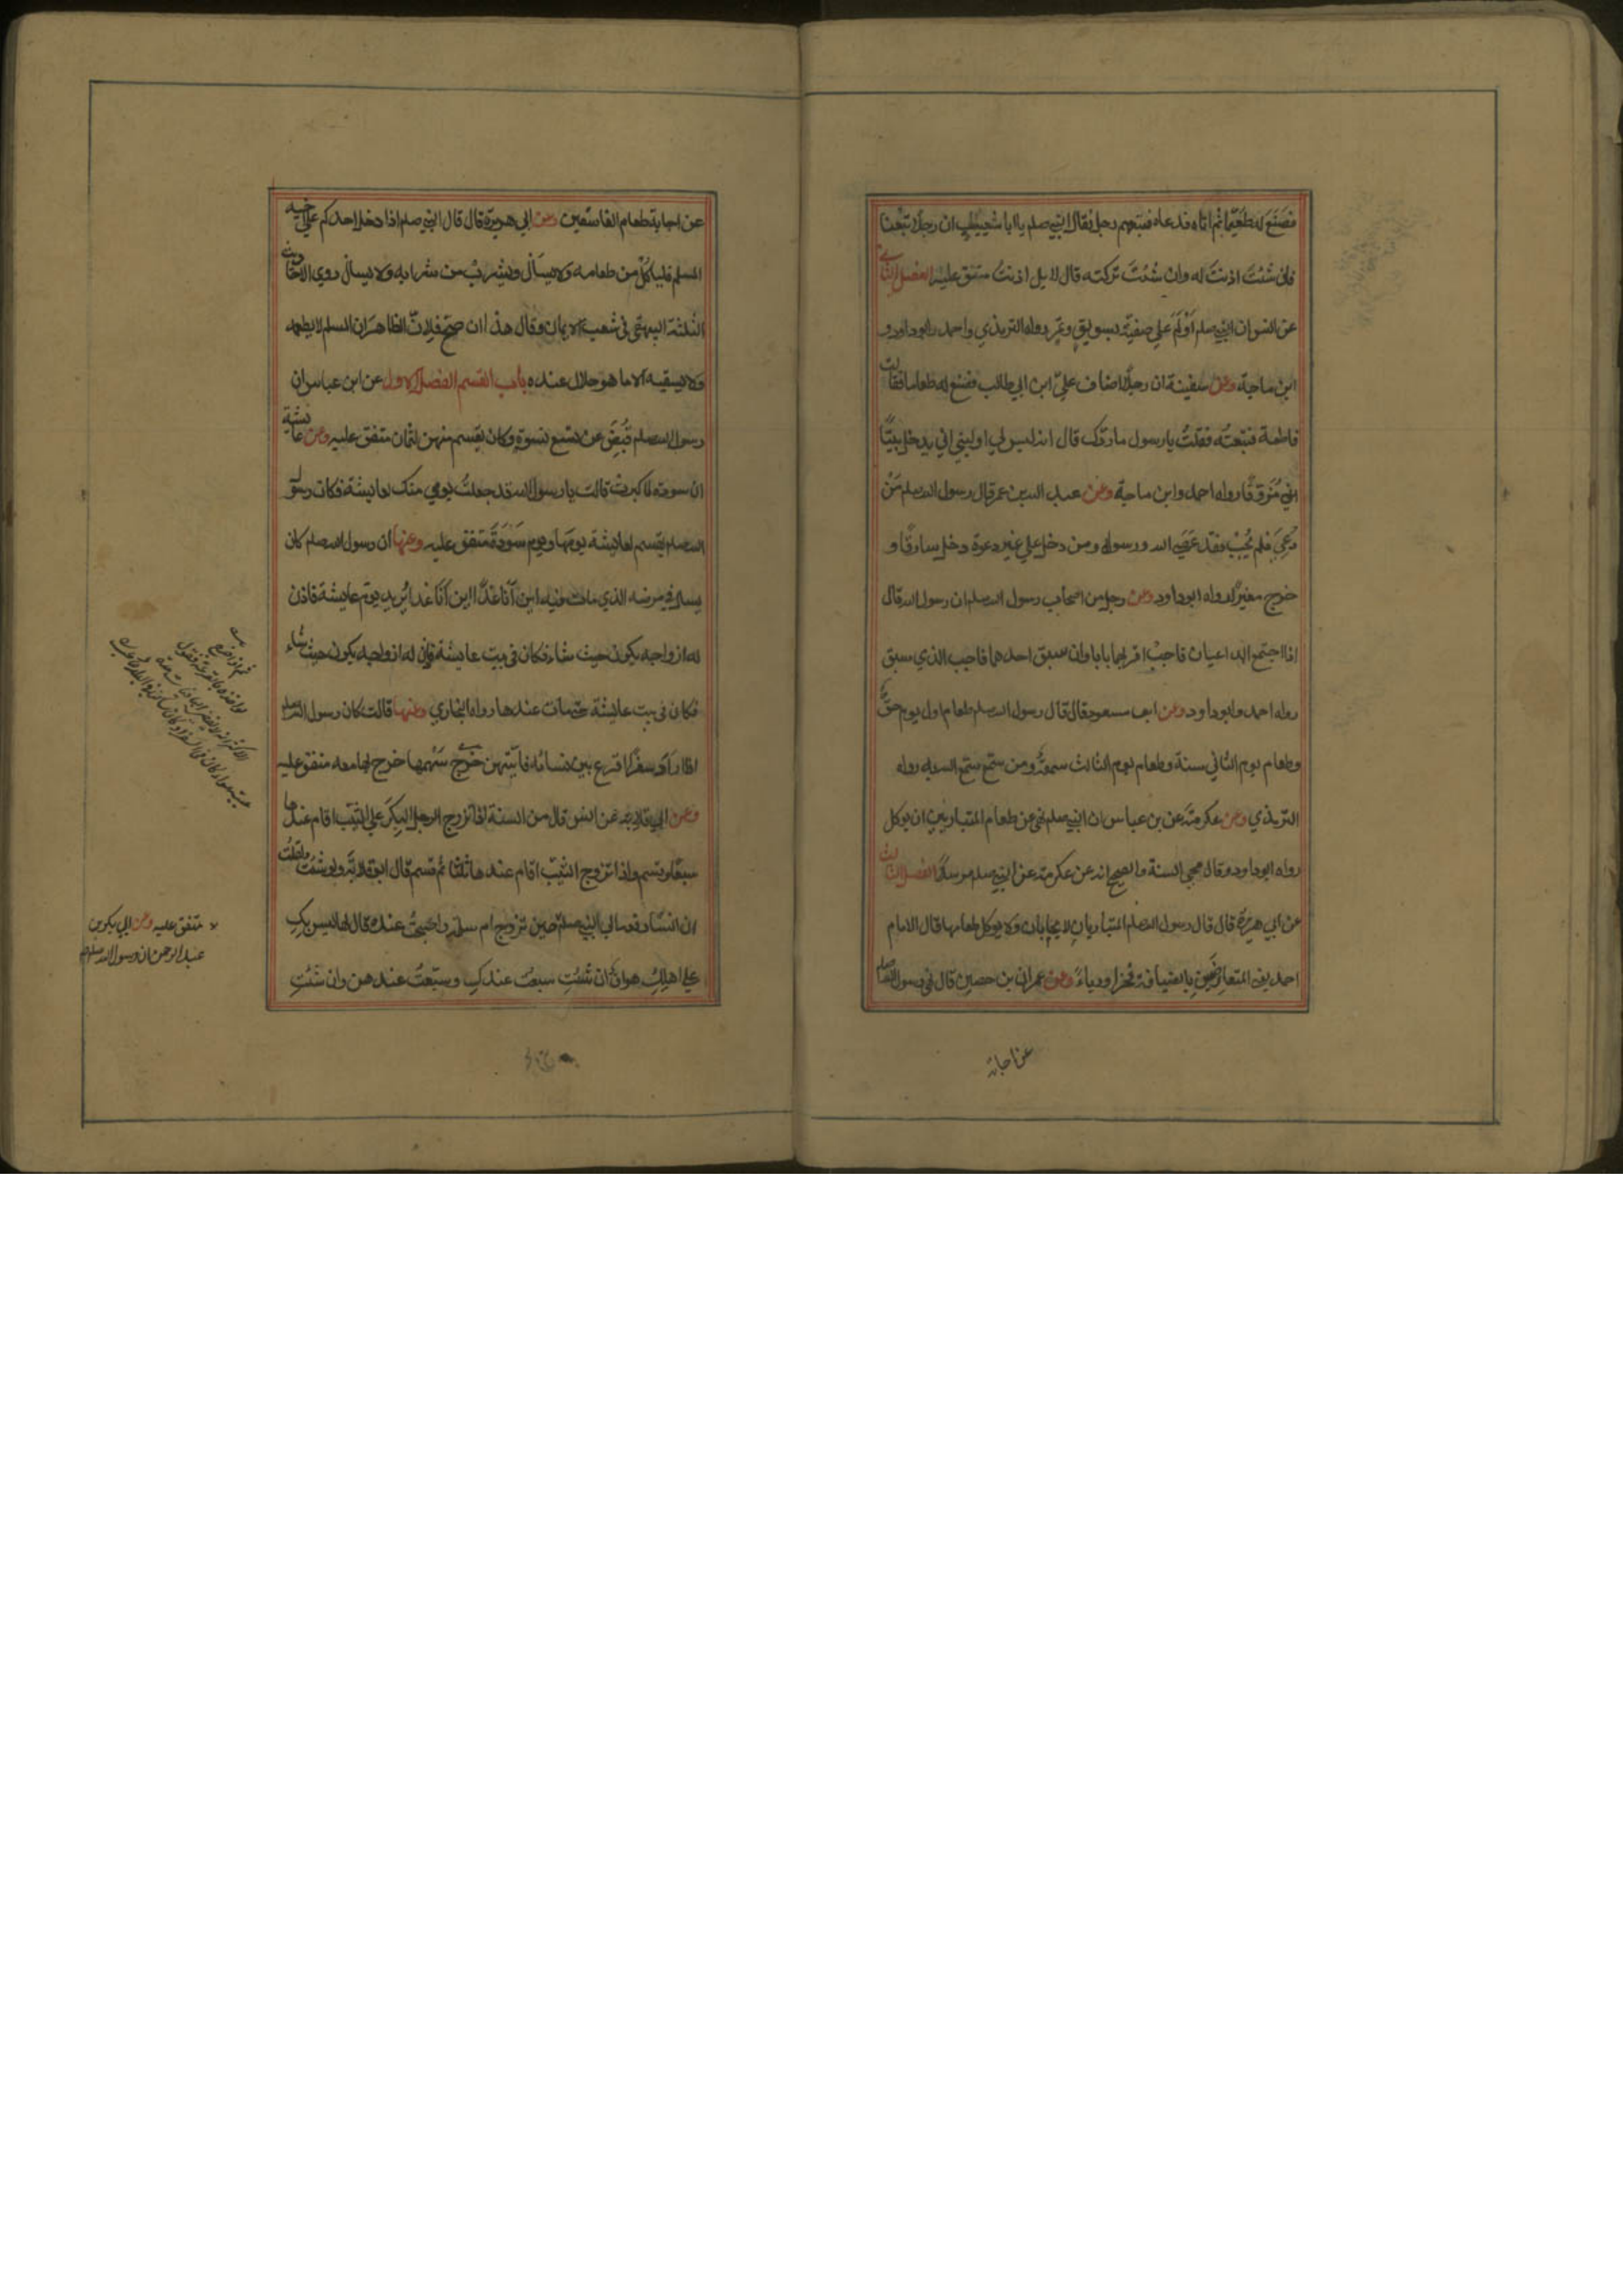 فصنع له طعيما ثم اتاه فدعاه فتبعهم رجل فقال النبي صلعم يا ابا شعيب ان رجلا تبعنا
فان شئت اذنت له وان شئت تركته قال لا بل اذنت متفق عليه الفصل الثاني
عن انس ان النبي صلعم اولم علي صفية بسويق وتمر رواه الترمذي واحمد وابوداود و
ابن ماجة وعن سفينة ان رجلا ضاف علي ابن ابي طالب فصنع له طعاما فقالت
فاطمة فتبعته فقلت يا رسول ما ردك قال انه ليس لي او لنبي ان يدخل بيتا
مزوقا رواه احمد وابن ماجة وعن عبد الله بن عمر قال رسول الله صلعم من
دعي فلم يجب فقد عصي الله ورسوله ومن دخل علي غير دعوة دخل سارقا و
خرج مغيرا رواه ابوداود وعن رجل من اصحاب رسول الله صلعم ان رسول الله قال
اذا اجتمع الداعيان فاجب اقربهما بابا وان سبق احدهما فاجب الذي سبق
رواه احمد وابوداود وعن ابن مسعود قال قال رسول الله صلعم طعام اول يوم حق
وطعام يوم الثاني سنة وطعام يوم الثالث سمعة ومن سمع سمع الله به رواه
الترمذي وعن عكرمة عن بن عباس ان النبي صلعم نهي عن طعام المتباريين ان يوكل
رواه ابوداود وقال محي السنة والصحيح انه عن عكرمة عن النبي صلعم مرسلا الفصل الثالث
عن ابي هريرة قال قال رسول الله صلعم المتباريان لا يجابان ولا يوكل طعامهما قال الامام
احمد يعني المتعارضين بالضيافة فخرا ورياء وعن عمران بن حصين قال نهي رسول الله صلعم
عن اجابة
عن اجابة طعام الفاسقين وعن ابي هريرة قال قال النبي صلعم اذا دخل احدكم علي اخيه
المسلم فلياكل من طعامه ولا يسال ويشرب من شرابه ولا يسال روي الاحاديث
الثلثة البيهقي في شعب الايمان وقال هذا ان صح فلان الظاهر ان المسلم لا يطعمه
ولا يسقيه الا ما هو حلال عنده باب القسم الفصل الاول عن ابن عباس ان
رسول الله صلعم قبض عن تسع نسوة وكان يقسم منهن لثمان متفق عليه وعن عايشة
ان سودة لما كبرت قالت يا رسول الله قد جعلت يومي منك لعايشة فكان رسول
الله صلعم يقسم لعايشة يومها ويوم سودة متفق عليه وعنها ان رسول الله صلعم كان
يسال في مرضه الذي مات فيه اين انا غدا اين انا غدا يريد يوم عايشة فاذن
له ازواجه يكون حيث شاء فكان في بيت عايشة فاذن له ازواجه يكون حيث شاء
فكان في بيت عايشة حتي مات عندها رواه البخاري وعنها قالت كان رسول الله صلعم
اذا اراد سفرا اقرع بين نسائه فايتهن خرج سهمها خرج بها معه متفق عليه
وعن ابي قلابة عن انس قال من السنة اذا تزوج الرجل البكر علي الثيب اقام عندها
سبعا وقسم واذا تزوج الثيب اقام عندها ثلثا ثم قسم قال ابو قلابة ولو شئت لقلت
ان انسا رفعه الي النبي صلعم حين تزوج ام سلمة واصبحت عنده قال لها ليس بك
علي اهلك هوان ان شئت سبعت عندك وسبعت عندهن وان شئت
متفق عليه وعن ابي بكر بن
عبد الرحمن ان رسول الله صلعم